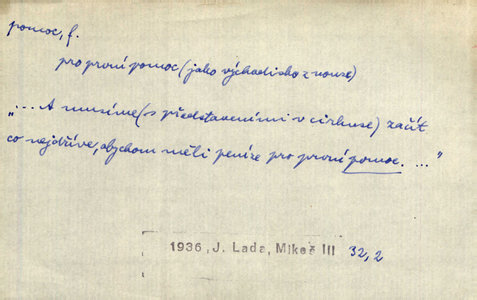 pomoc, f.
pro první pomoc (jako východisko z nouze)
„... A musíme (s představeními v cirkuse) začít
co nejdříve, abychom měli peníze pro první pomoc. ..."
1936, J. Lada, Mikeš III 32,2